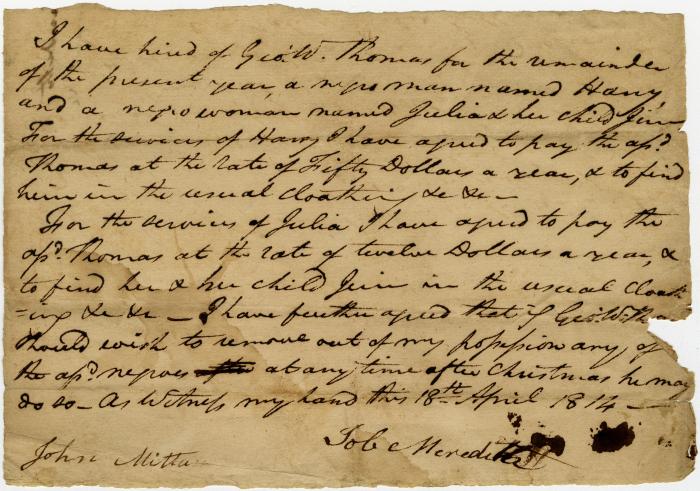 I have hired of Geo: W. Thomas for the remainder
of the present year, a negro man named Harry
and a negro woman named Julia & her child Jim
For the services of Harry I have agred to pay the afsd.
Thomas at the rate of Fifty Dollars a year, & to find
him in the usual cloathing &c &c –
For the services of Julia I have agred to pay the
afsd. Thomas at the rate of twelve Dollars a year, &
to find her & her child Jim in the usual Cloath
=ing &c &c – I have further agred that if Geo: W. Th
should wish to remove out of my possession any of
the afsd. negroes at any time after Christmas he may
do so – As Witness my hand this 18th. April 1814 –
Job Meredith
John